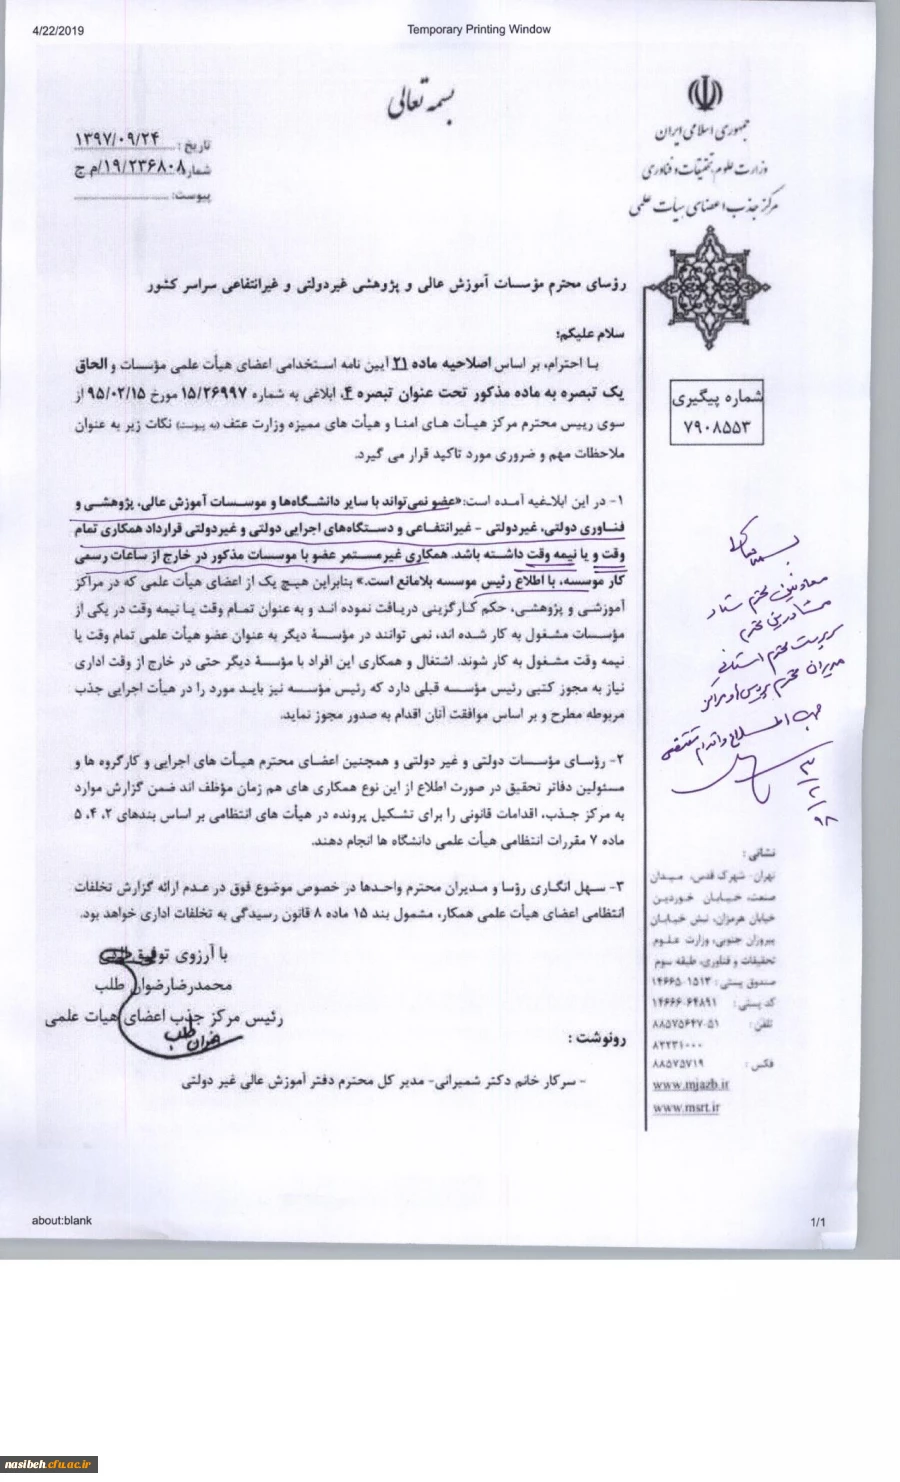 4/22/2019
Temporary Printing Window
بسمه تعالی
جمهوری اسلامی ایران
وزارت علوم، تحقیقات و فناوری
مرکز جذب اعضای هیأت علمی
تاریخ: ۱۳۹۷/۰۹/۲۴
شماره ۱۹/۲۳۶۸۰۸/م ج
پیوست:
رؤسای محترم مؤسسات آموزش عالی و پژوهشی غیردولتی و غیرانتفاعی سراسر کشور
سلام علیکم؛
شماره پیگیری
۷۹۰۸۵۵۳
با احترام، بر اساس اصلاحیه ماده ۲۱ آیین نامه استخدامی اعضای هیأت علمی مؤسسات و الحاق
یک تبصره به ماده مذکور تحت عنوان تبصره ۴، ابلاغی به شماره ۱۵/۲۶۹۹۷ مورخ ۹۵/۰۲/۱۵ از
سوی رییس محترم مرکز هیأت های امنا و هیأت های ممیزه وزارت عتف (به پیوست) نکات زیر به عنوان
ملاحظات مهم و ضروری مورد تاکید قرار می گیرد.
۱- در این ابلاغیه آمده است: «عضو نمی‌تواند با سایر دانشگاه‌ها و موسسات آموزش عالی، پژوهشی و
فناوری دولتی، غیردولتی - غیرانتفاعی و دستگاه‌های اجرایی دولتی و غیردولتی قرارداد همکاری تمام
وقت و یا نیمه وقت داشته باشد. همکاری غیرمستمر عضو با موسسات مذکور در خارج از ساعات رسمی
کار موسسه، با اطلاع رئیس موسسه بلامانع است.» بنابراین هیچ یک از اعضای هیأت علمی که در مراکز
آموزشی و پژوهشی، حکم کارگزینی دریافت نموده اند و به عنوان تمام وقت یا نیمه وقت در یکی از
مؤسسات مشغول به کار شده اند، نمی توانند در مؤسسهٔ دیگر به عنوان عضو هیأت علمی تمام وقت یا
نیمه وقت مشغول به کار شوند. اشتغال و همکاری این افراد با مؤسسهٔ دیگر حتی در خارج از وقت اداری
نیاز به مجوز کتبی رئیس مؤسسه قبلی دارد که رئیس مؤسسه نیز باید مورد را در هیأت اجرایی جذب
مربوطه مطرح و بر اساس موافقت آنان اقدام به صدور مجوز نماید.
۲- رؤسای مؤسسات دولتی و غیر دولتی و همچنین اعضای محترم هیأت های اجرایی و کارگروه ها و
مسئولین دفاتر تحقیق در صورت اطلاع از این نوع همکاری های هم زمان مؤظف اند ضمن گزارش موارد
به مرکز جذب، اقدامات قانونی را برای تشکیل پرونده در هیأت های انتظامی بر اساس بندهای ۲، ۴، ۵
ماده ۷ مقررات انتظامی هیأت علمی دانشگاه ها انجام دهند.
۳- سهل انگاری رؤسا و مدیران محترم واحدها در خصوص موضوع فوق در عدم ارائه گزارش تخلفات
انتظامی اعضای هیأت علمی همکار، مشمول بند ۱۵ ماده ۸ قانون رسیدگی به تخلفات اداری خواهد بود.
با آرزوی توفیق الهی
محمدرضا رضوان طلب
رئیس مرکز جذب اعضای هیات علمی
رونوشت :
- سرکار خانم دکتر شمیرانی- مدیر کل محترم دفتر آموزش عالی غیر دولتی
معاونین محترم ستاد
مشاورین محترم
سرپرست محترم استانی
مدیران محترم پردیس و مراکز
جهت اطلاع و اقدام مقتضی
نشانی :
تهران- شهرک قدس، میدان
صنعت، خیابان خوردین
خیابان هرمزان، نبش خیابان
پیروزان جنوبی، وزارت علوم
تحقیقات و فناوری، طبقه سوم
صندوق پستی : ۱۵۱۳-۱۴۶۶۵
کد پستی : ۶۴۸۹۱-۱۴۶۶۶
تلفن : ۸۸۵۷۵۶۴۷-۵۱
۸۲۲۳۱۰۰۰
فکس : ۸۸۵۷۵۷۱۹
www.mjazb.ir
www.msrt.ir
about:blank
1/1
nasibeh.cfu.ac.ir